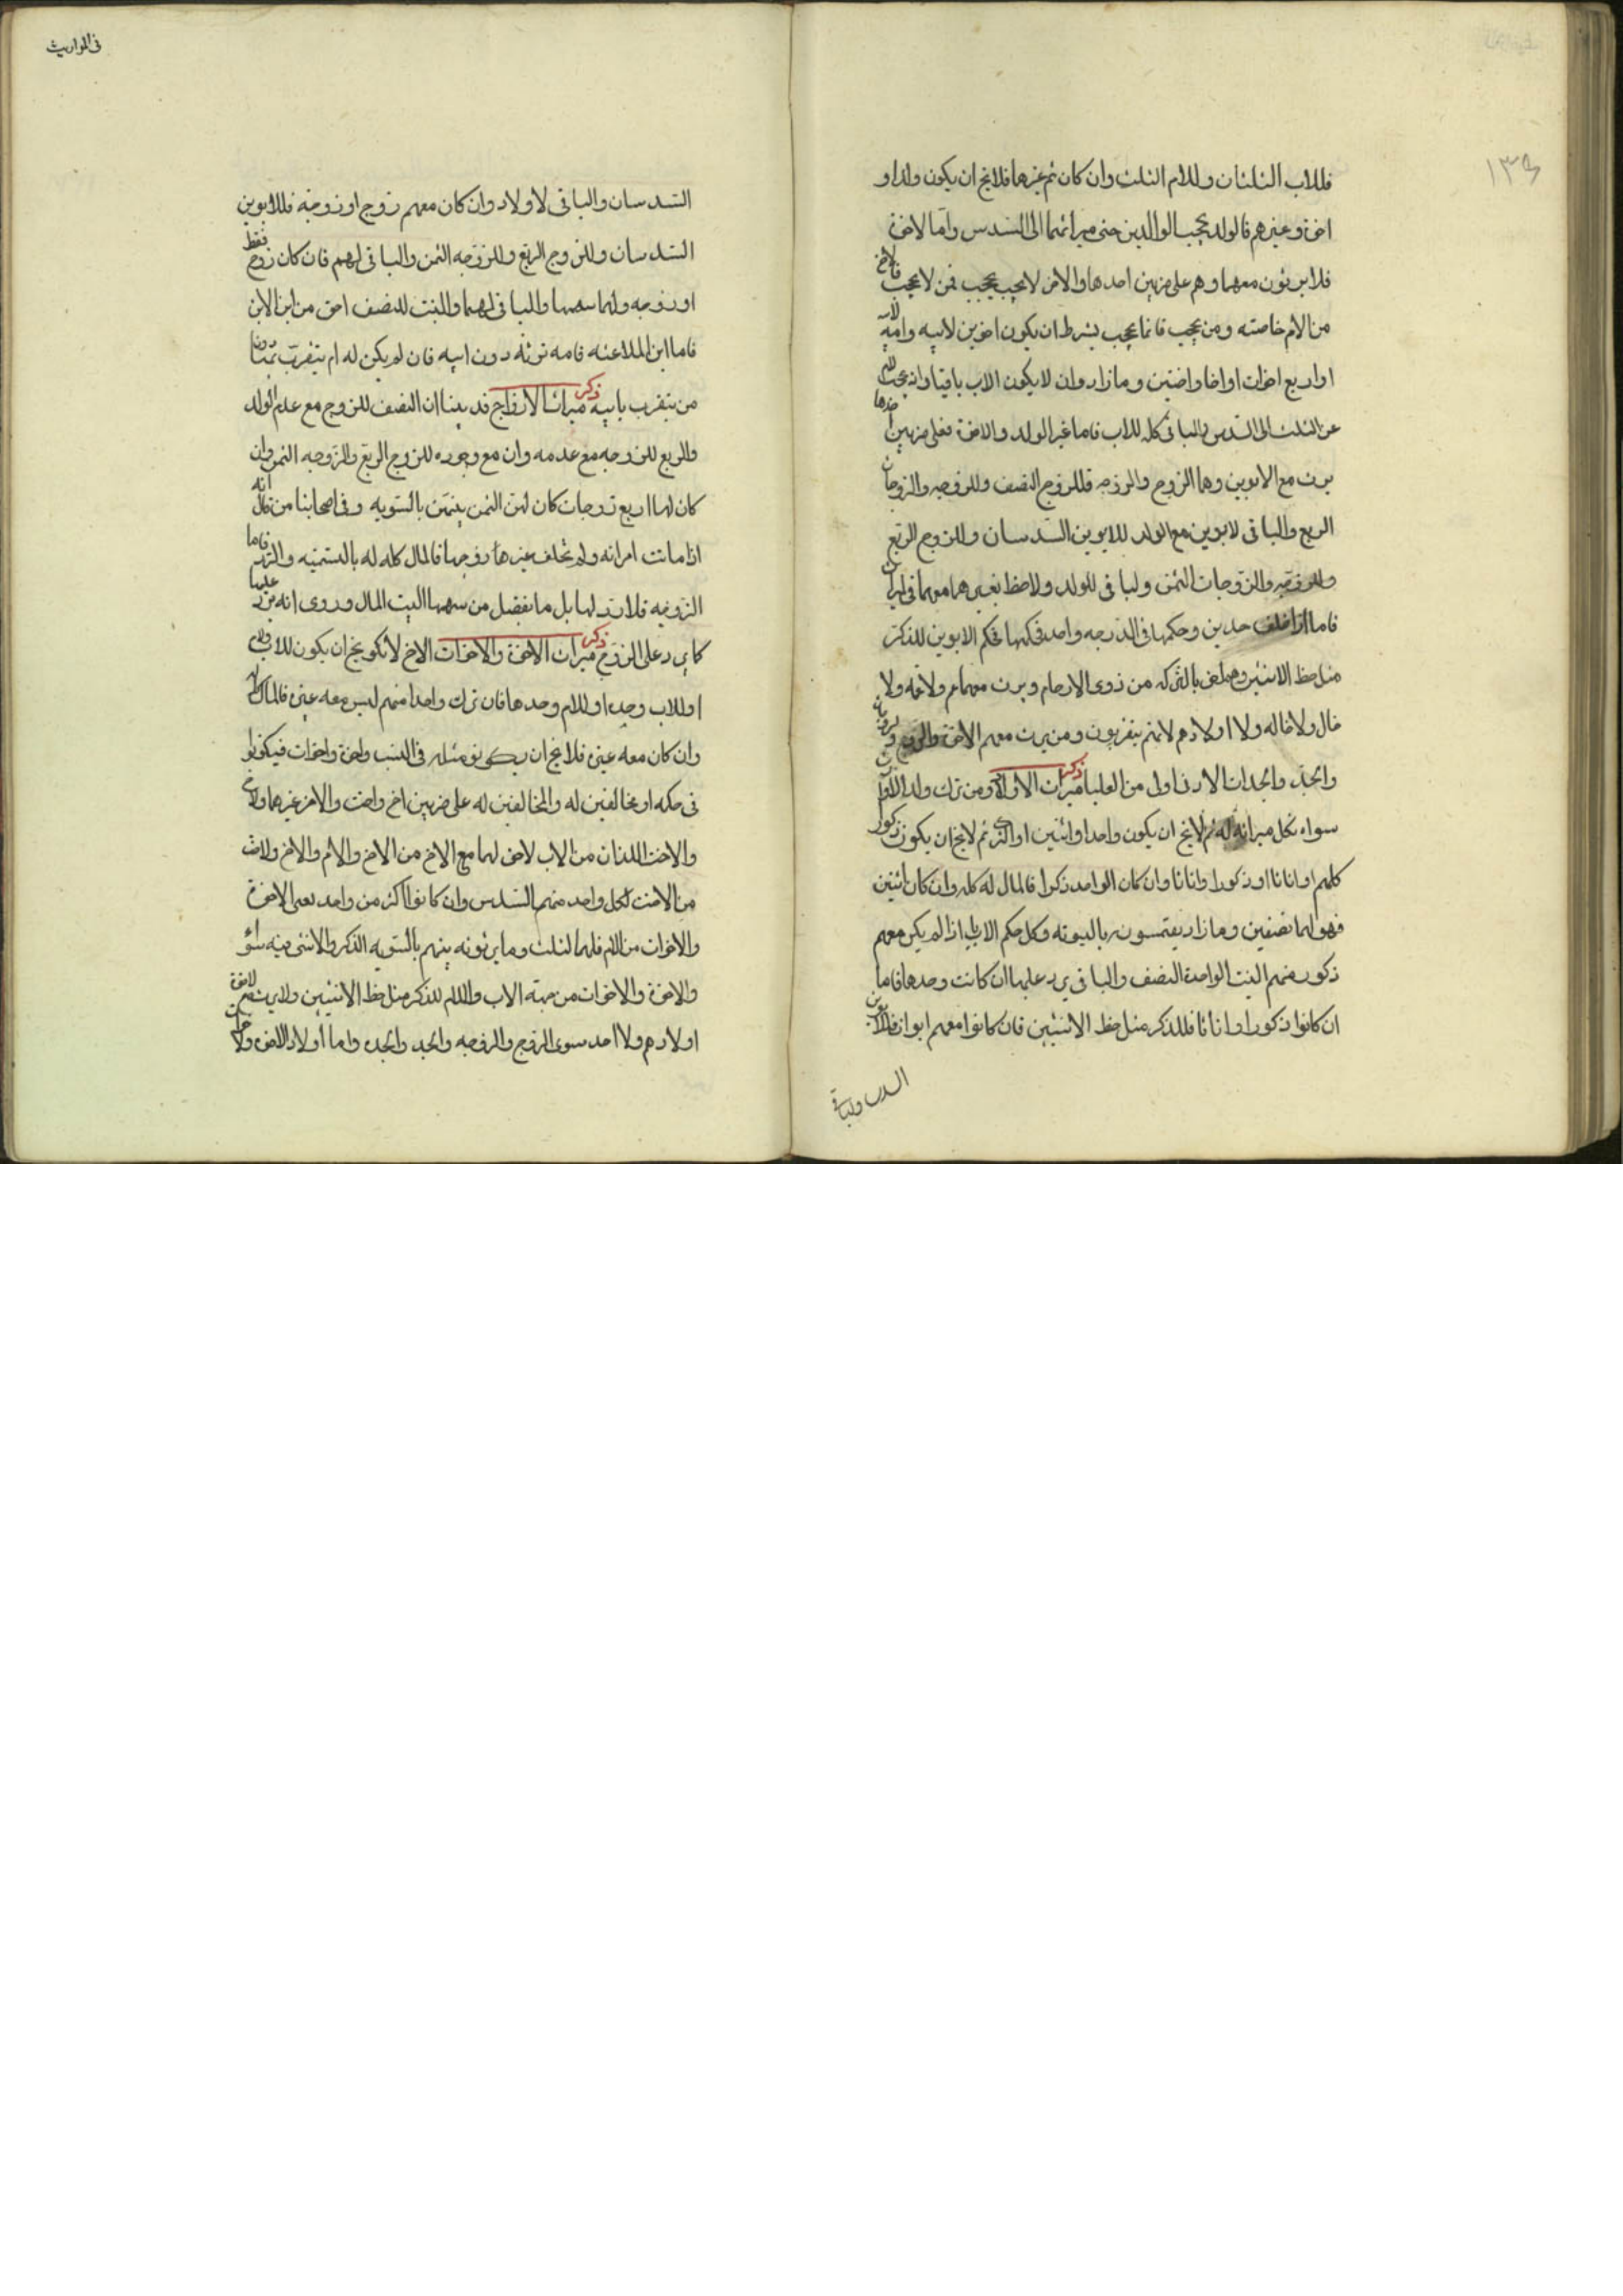 ١٣٦
فللاب الثلثان وللام الثلث وان كان ثم غيرهما فلا يخ ان يكون ولدا و
اخوة وغيرهم فالولد يحجب الوالدين حتى ميراثهما الى السدس واما الاخوة
فلا يرثون معهما وهم على ضربين احدهما والاخر لا يحجب يحجب فمن لا يحجب فالاخ
من الام خاصته ومن يحجب فانما يحجب بشرط ان يكون اخوين لابيه وامه
او اربع اخوات او اخا واختين وما زاد وان لا يكون الاب باقيا وان يحجب
عن الثلث الى السدس والباقى كله للاب فاما غير الولد والاخوة فعلى ضربين احدها
يرث مع الابوين وهما الزوج والزوجه فللزوج النصف وللزوجه والزوجات
الربع والباقى لابوين مع الولد للابوين السدسان وللزوج الربع
وللزوجه والزوجات الثمن ولباقى للولد ولا حظ لغيرهما معهما فى
فاما اذا خلف جدين وحكمهما فى الدرجه واحد فحكمها حكم الابوين للذكر
مثل حظ الانثيين من ذوى الارحام ويرث معهما عم ولا عمه ولا
خال ولا خاله ولا اولادهم لانهم يتقربون ومن يرث معهم الاخوة والزوج
والجد والجدات الادنى اولى من العليا ذكر ميراث الاولاد ومن ترك ولد
سواه فكل ميراثه له ثم لا يخ ان يكون واحدا واثنين او اكثر ثم لا يخ ان يكون ذكور
كلهم او اناثا او ذكورا واناثا وان كان الواحد ذكرا فالمال له كله وان كان اثنين
فهو لهما نصفين وما زاد يقتسمونه بالسويه وكل حكم الاناث اذا لم يكن معهم
ذكور فمنهم البنت الواحدة النصف والباقى يرد عليها ان كانت وحدها فاما
ان كانوا ذكورا واناثا فللذكر مثل حظ الانثيين فان كانوا معهم ابوان فللابوين
السدسا ولباقى
فى المواريث
السدسان والباقى لاولاد وان كان معهم زوج او زوجة فللابوين
السدسان وللزوج الربع وللزوجه الثمن والباقى لهم فان كان زوج فقط
او زوجه ولها سهمها والباقى لهما والبنت للنصف احق من ابن الابن
فاما ابن الملاعنه فامه ترثه دون ابيه فان لم يكن له ام يتقرب
من يتقرب بابيه ذكر ميراث الازواج قد بينا ان النصف للزوج مع عدم الولد
والربع للزوجه مع عدمه وان مع وجوده للزوج الربع والزوجه الثمن وان
كان لها اربع زوجات كان لهن الثمن بينهن بالسويه وفى اصحابنا من قال انه
اذا ماتت امراته ولم تخلف غيرها زوجها فالمال كله له بالتسميه والرد فاما
الزوجه فلا رد لها بل ما يفضل من سهمها البيت المال وروى انه يرد عليها
كما يرد على الزوج ذكر ميراث الاخوة والاخوات الاخ لا يخ ان يكون للاب
او للاب وحده او للام وحدها فان ترك واحدا منهم ليس معه غيره فالمال له
وان كان معه غيره فلا يخ ان يكونو مثله فى النسب واخوة واخوات فيكونوا
فى حكمه او مخالفين له والمخالفين له على ضربين اخ واخت والاخر غيرهما
والاخت اللذان من الاب لا حق لهما مع الاخ من الاخ والام والاخ ولاخت
من الاخت لكل واحد منهم السدس وان كانوا اكثر من واحد يعنى الاخوة
والاخوات من الام فلهما لثلث وما يرثونه بينهم بالسويه الذكر والانثى فيه سواء
والاخوة والاخوات من جهة الاب والام للذكر مثل حظ الانثيين ولا يرث مع الاخوة
اولادهم ولا احد سوى الزوج والزوجه والجد والجده واما اولاد الاخوة